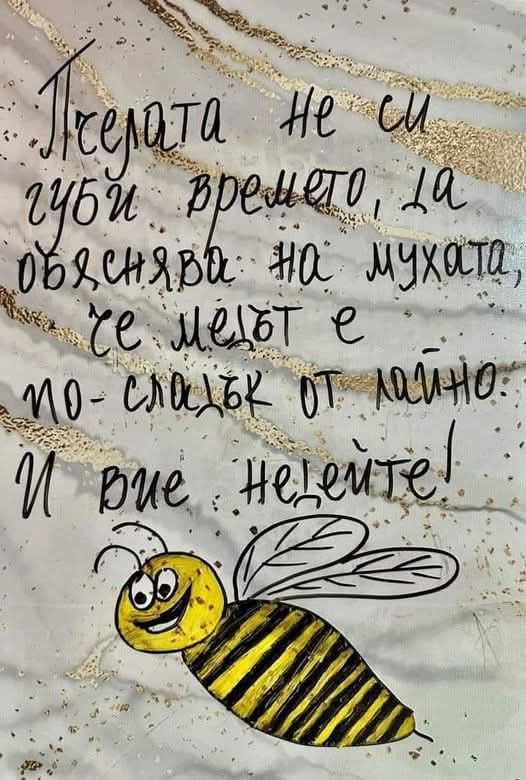 Пчелата не си
губи времето, да
обяснява на мухата,
че медът е
по-сладък от лайно.
И вие недейте!